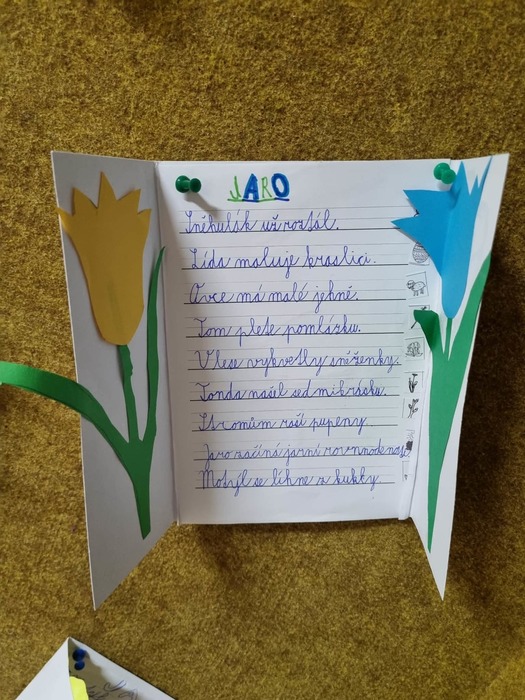 JARO
Sněhulák už roztál.
Lída maluje kraslici.
Ovce má malé jehně.
Tom plete pomlázku.
V lese vykvetly sněženky.
Tonda našel sedmikrásku.
Stromům raší pupeny.
Jaro začíná jarní rovnodenost.
Motýl se líhne z kukly